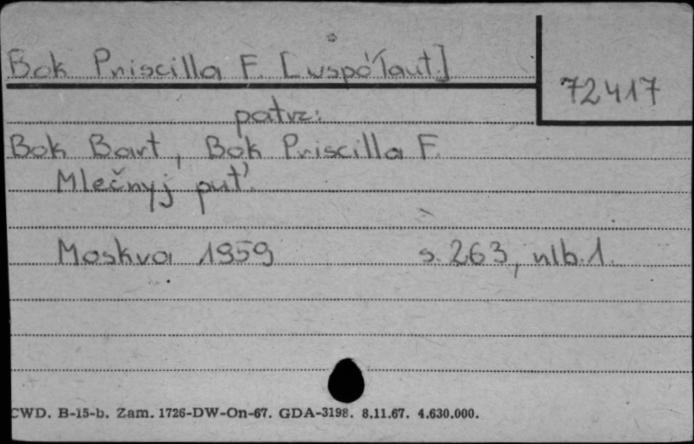 Bok Priscilla F. [współaut.]
72417
patrz:
Bok Bart, Bok Priscilla F.
Mlečnyj put'.
Moskva 1959 s. 263, nlb. 1.
CWD. B-15-b. Zam. 1726-DW-On-67. GDA-3198. 8.11.67. 4.630.000.